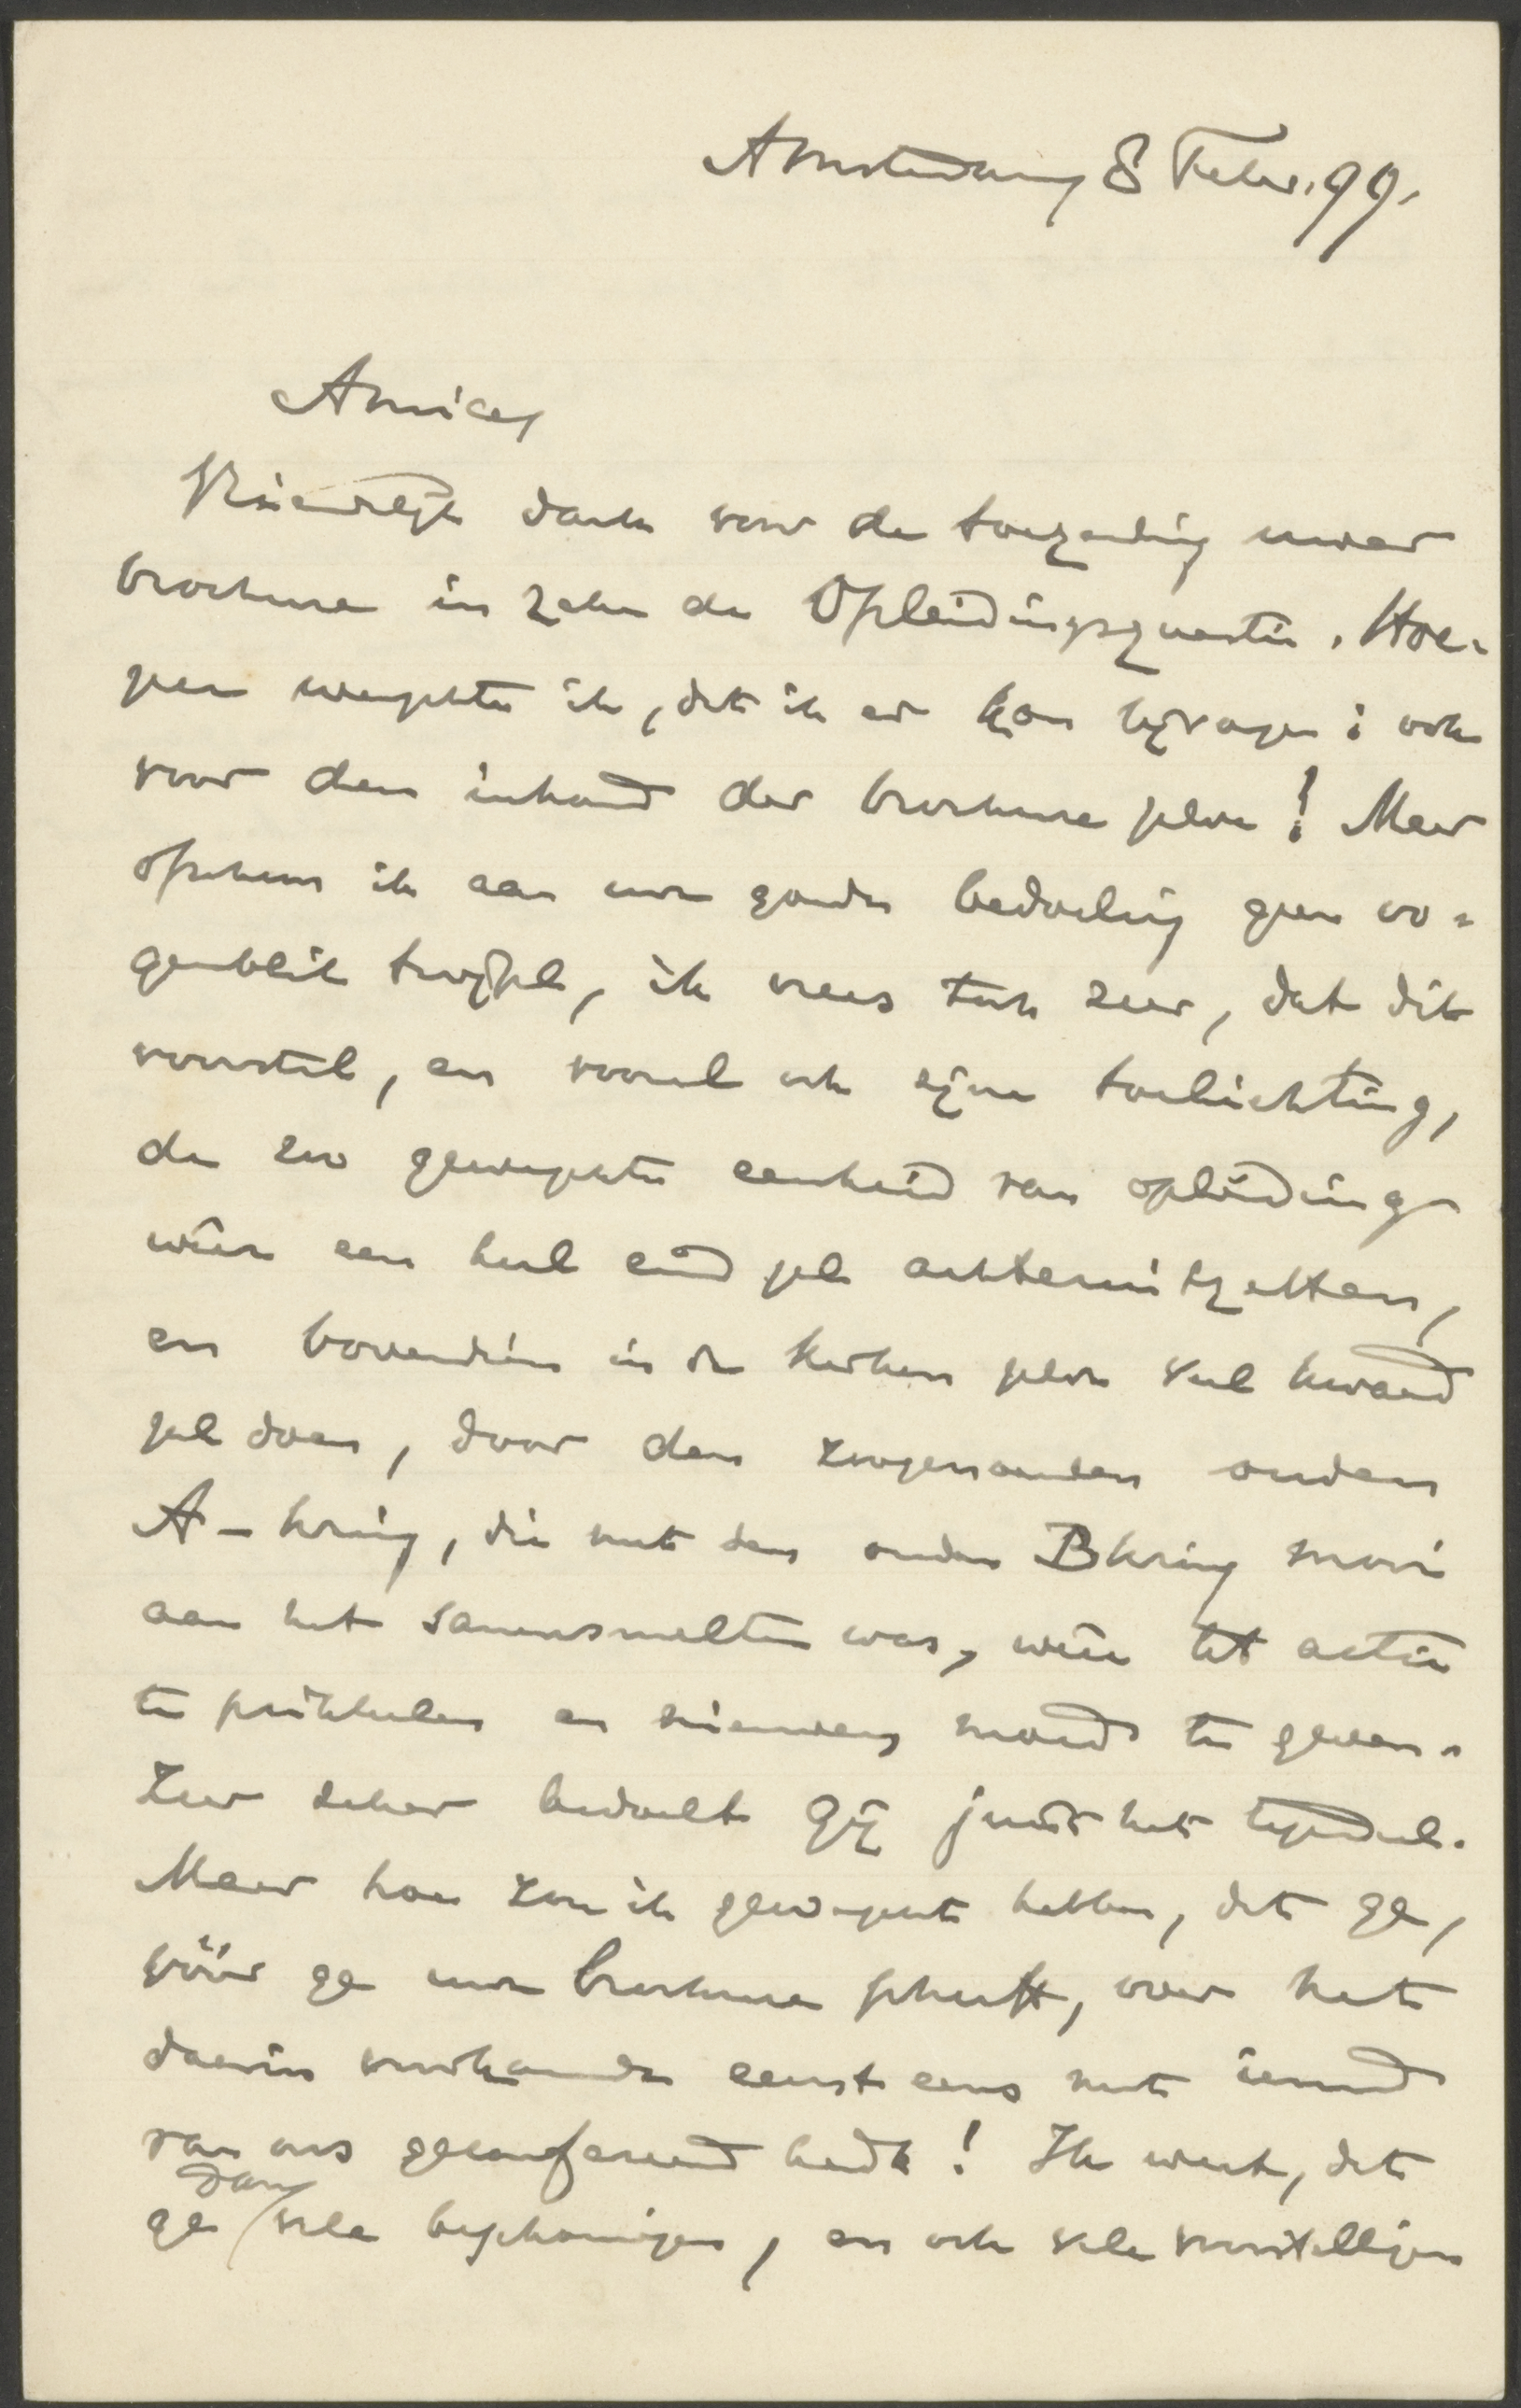 Amsterdam, 8 Febr. 99.
Amice,
Vriendelijk dank voor de toezending uwer
brochure in zake de Opleidingsquaestie. Hoe-
zeer wenschte ik, dat ik er kon bijvoegen: ook
voor den inhoud der brochure zelve! Maar
ofschoon ik aan uwe goede bedoeling geen oo-
genblik twijfel, ik vrees toch zeer, dat dit
voorstel, en vooral ook zijne toelichting,
de zoo gewenschte eenheid van opleiding
weêr een heel eind zal achteruitzetten,
en bovendien in de Kerken zelve veel kwaad
zal doen, door den zoogenaamden ouden
A-kring, die met den ouden B kring mooi
aan het samensmelten was, weêr tot actie
te prikkelen en nieuwen moed te geven.
Zeer zeker bedoelt Gij juist het tegendeel.
Maar hoe zou ik gewenscht hebben, dat ge,
vóór ge uwe brochure schreeft, over het
daarin verhandelde eerst eens met iemand
van ons geconfereerd hadt! Ik weet, dat
ge dan vele beschouwingen, en ook vele voorstellingen